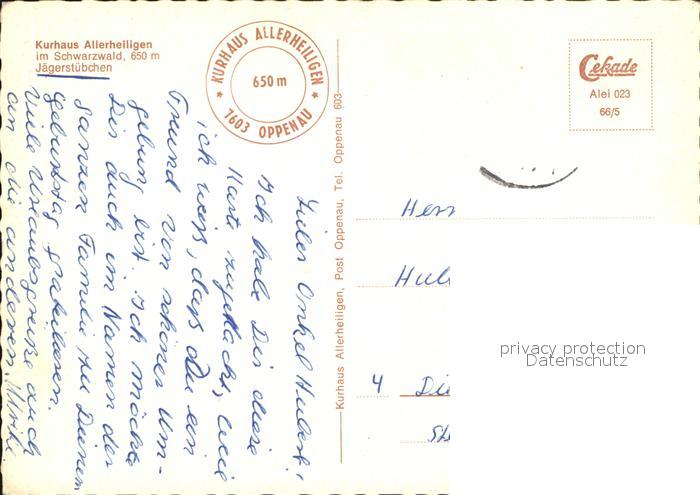 Kurhaus Allerheiligen
im Schwarzwald, 650 m
Jägerstübchen
KURHAUS ALLERHEILIGEN
650 m
7603 OPPENAU
Cekade
Alei 023
66/5
Kurhaus Allerheiligen, Post Oppenau, Tel. Oppenau 603
Lieber Onkel Hubert!
Ich habe Dir diese
Karte zugedacht, weil
ich weiß, daß Du ein
Freund von schöner Um-
gebung bist. Ich möchte
Dir auch im Namen der
ganzen Familie zu Deinem
Geburtstag gratulieren.
Viele Urlaubsgrüße auch
an die anderen, Ulrike
Herr
Hub
4 Di
privacy protection
Datenschutz